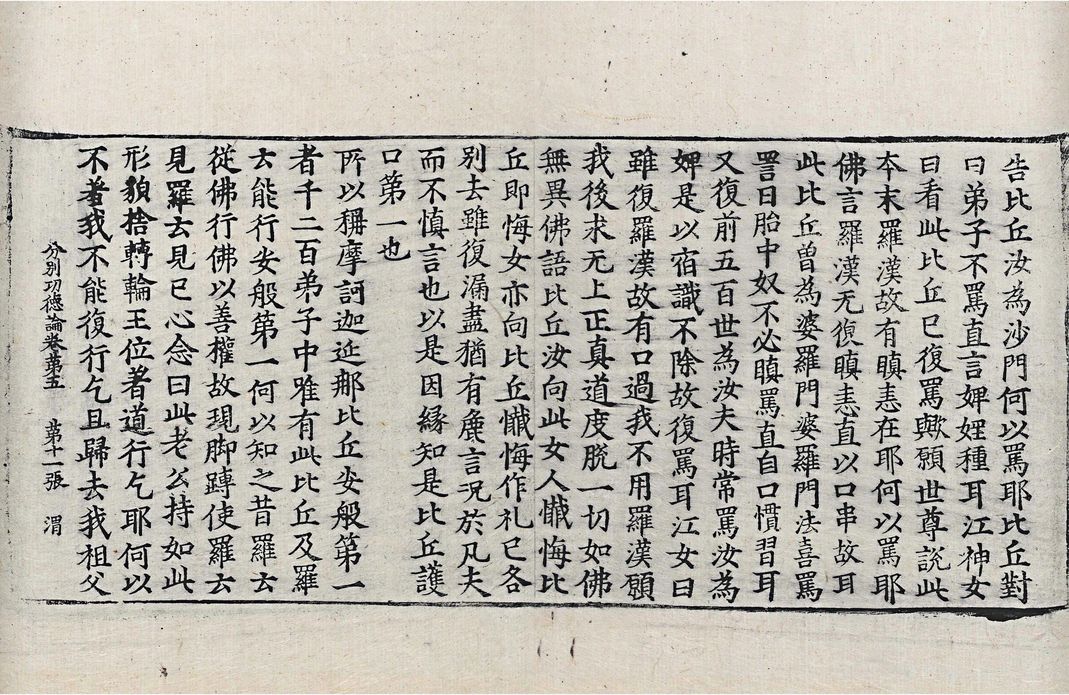 告比丘汝為沙門何以罵耶比丘對
曰弟子不罵直言婢婬種耳江神女
曰看此比丘已復罵歟願世尊說此
本末羅漢故有瞋恚在耶何以罵耶
佛言羅漢无復瞋恚直以口串故耳
此比丘曾為婆羅門婆羅門法喜罵
詈曰胎中奴不必瞋罵直自口慣習耳
又復前五百世為汝夫時常罵汝為
婢是以宿識不除故復罵耳江女曰
雖復羅漢故有口過我不用羅漢願
我後求无上正真道度脫一切如佛
無異佛語比丘汝向此女人懺悔比
丘即悔女亦向比丘懺悔作礼已各
別去雖復漏盡猶有麁言況於凡夫
而不慎言也以是因緣知是比丘護
口第一也
所以稱摩訶迦延那比丘安般第一
者千二百弟子中唯有此比丘及羅
云能行安般第一何以知之昔羅云
從佛行佛以善權故現脚蹲使羅云
見羅云見已心念曰此老公持如此
形貌捨轉輪王位著道行乞耶何以
不著我我不能復行乞且歸去我祖父
分別功德論卷第五 第十一張 渭